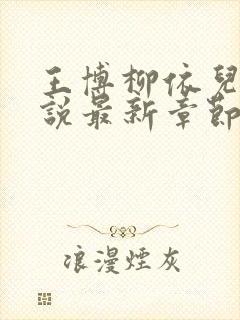 王博柳依兒
說最新章節
浪漫煙灰